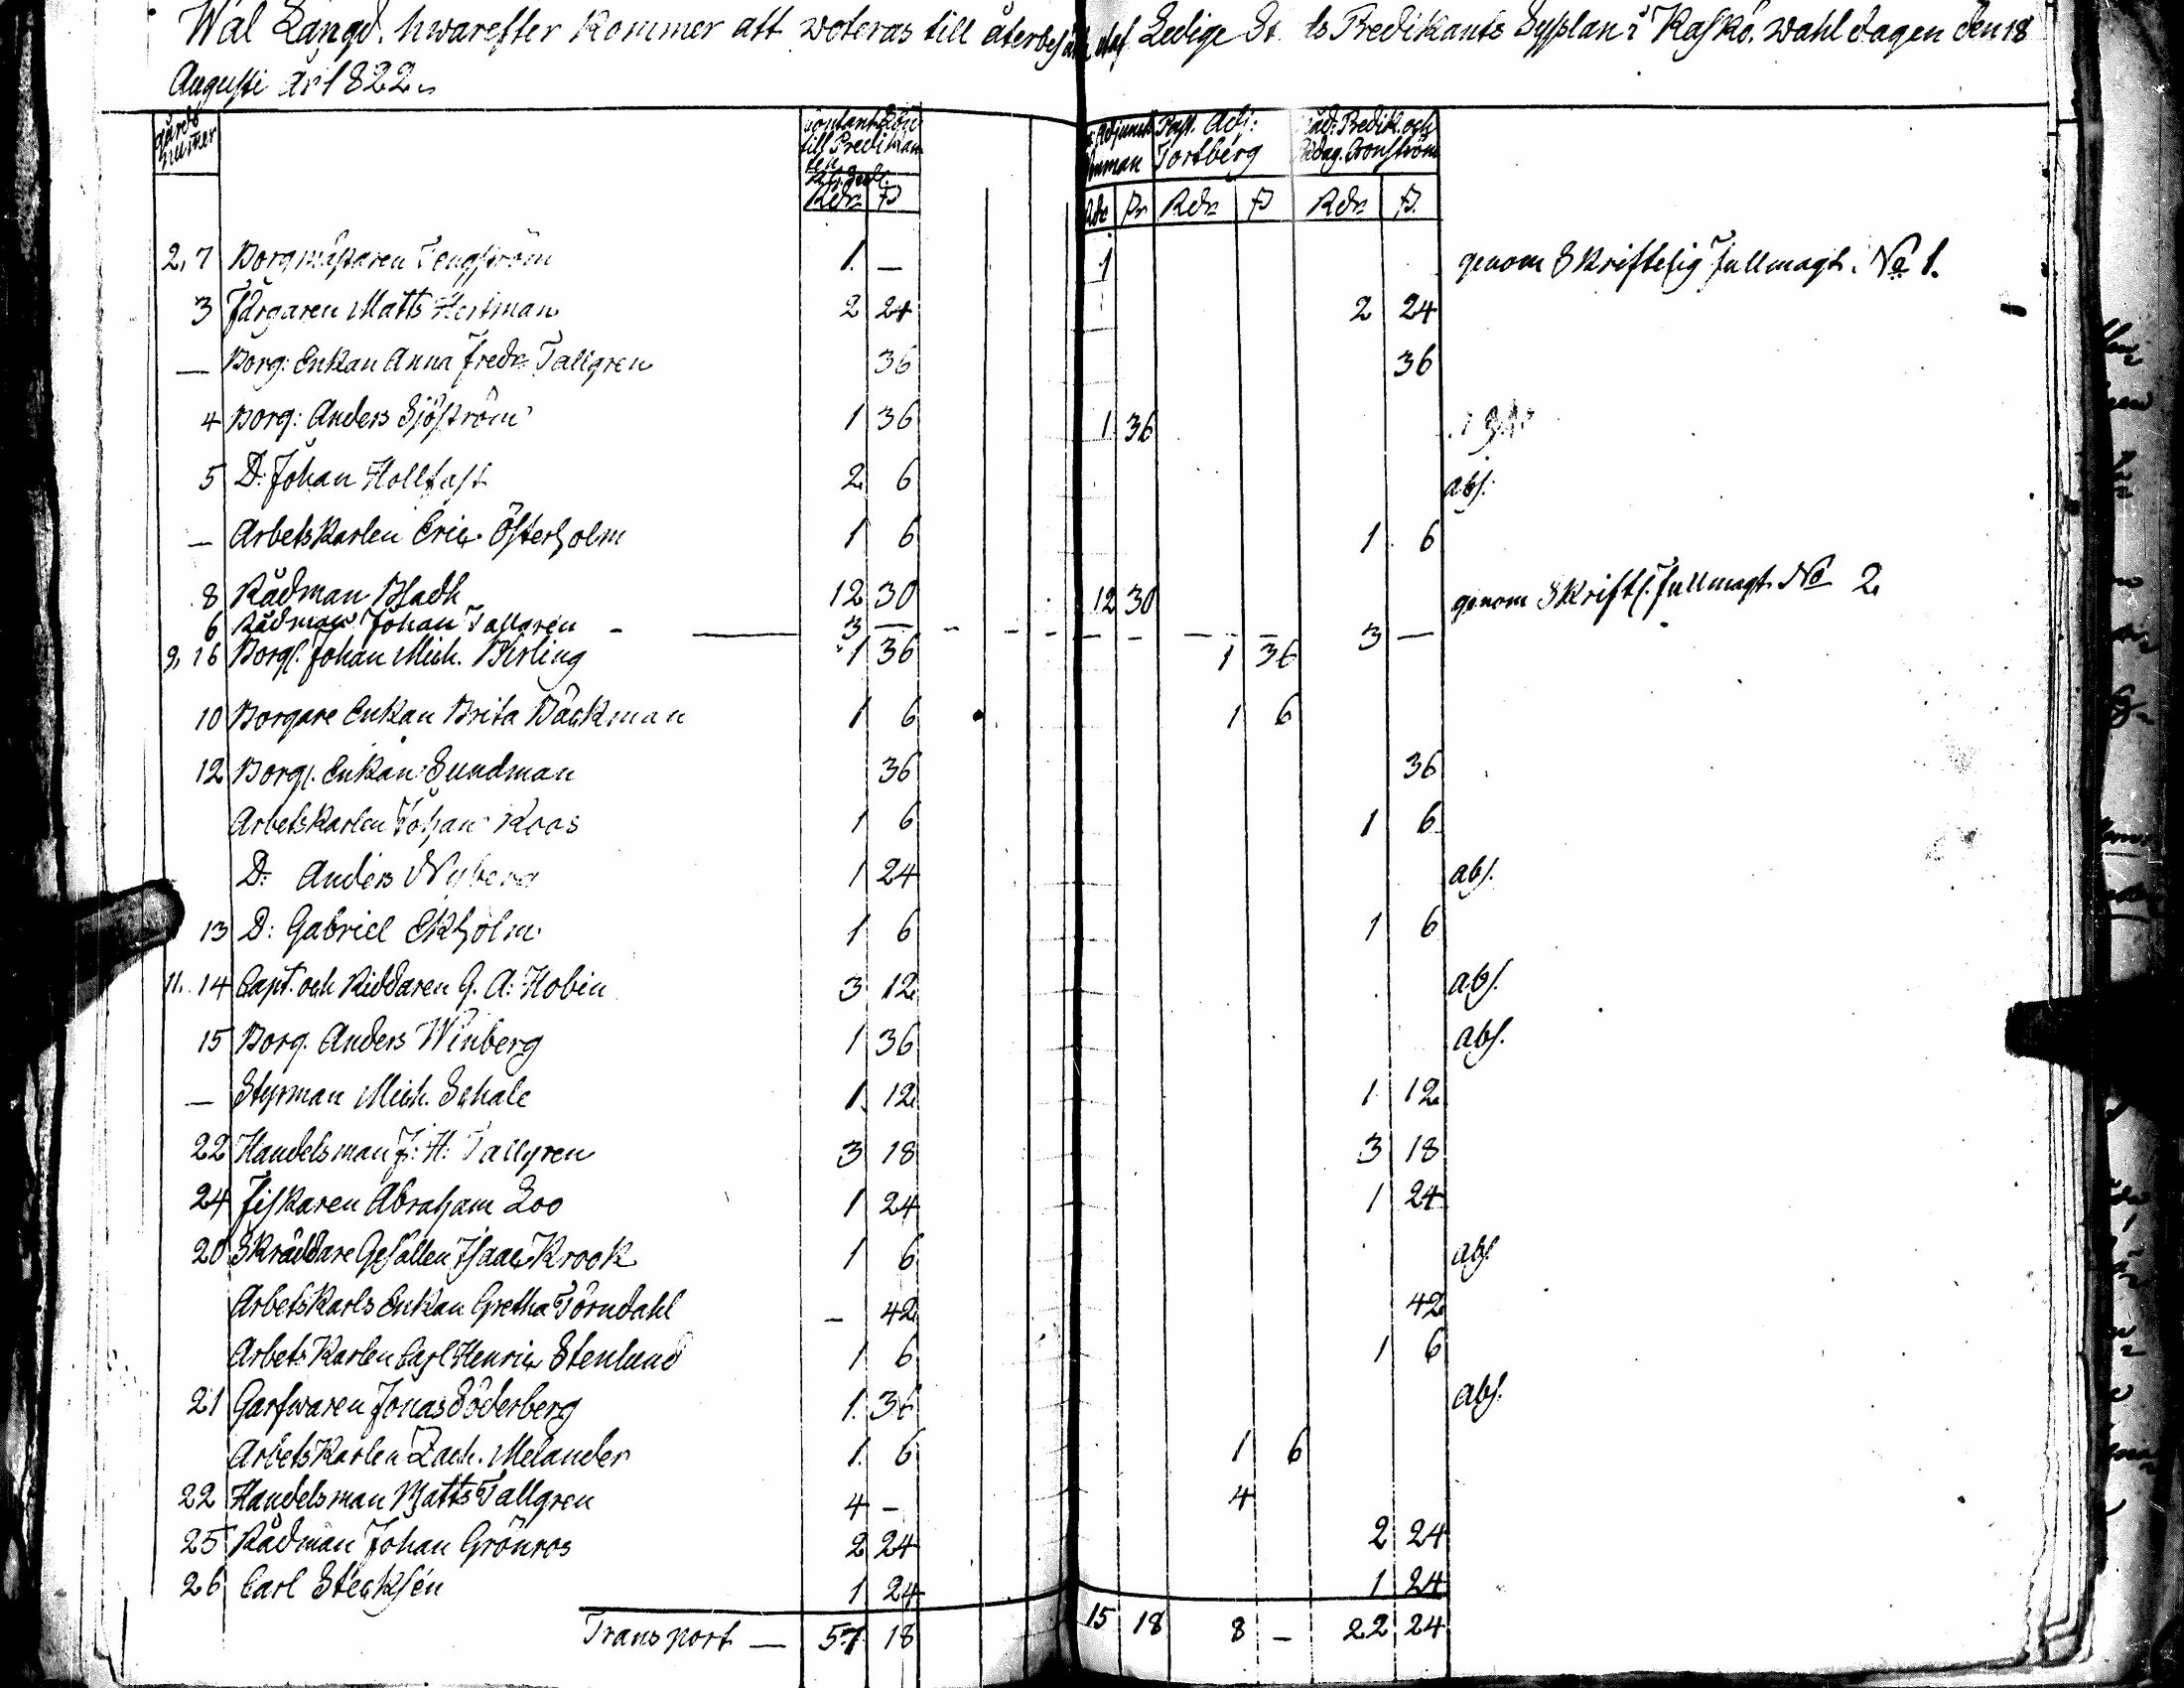 Wal Längd, hwarefter kommer att woteras till återbesätt af Ledige St ds Predikants Sysslan i Kaskö. Wahl dagen den 18
Augusti År 1822.
Gårds Numer
Contant Lön till Predikan ten Adjunct Past. Adj: Tortberg Råd: Predik. och Pædag. Cronström
Rdr β Rdr Rdr β Rdr β
2, 7 Borgmästaren Tengström 1. — 1 genom Skriftelig Fullmagt. No 1.
3 Färgaren Matts Hertman 2 24 2 24
— Borg: Enkan Anna Fredr. Tallgren 36 36
4 Borg: Anders Sjöström 1 36 1 36
5 D: Johan Hollfast 2 6 abs.
— Arbetskarlen Eric Österholm 1 6 1 6
8 Rådman Bladh 12 30 12 30 genom Skriftl. Fullmagt No 2.
6 Rådman Johan Tallgren — 3 — 3 —
9, 16 Borg. Johan Mich. Berling 1 36 1 36
10 Borgare Enkan Brita Bäckman 1 6 1 6
12 Borg. Enkan Sundman 36 36
Arbetskarlen Johan Roos 1 6 1 6
D: Anders Nyberg 1 24 abs.
13 D: Gabriel Ekholm 1 6 1 6
11. 14 Capt. och Riddaren G. A: Hobin 3 12 abs.
15 Borg. Anders Winberg 1 36 abs.
— Styrman Mich. Schale 1. 12 1 12
22 Handelsman J: H: Tallgren 3 18 3 18
24 Fiskaren Abraham Loo 1 24 1 24
20 Skräddare Gesällen Isaac Krook 1 6 abs.
Arbetskarls Enkan Gretha Törndahl — 42 42
Arbets Karlen Carl Henric Stenlund 1 6 1 6
21 Garfwaren Jonas Söderberg 1. 36 abs.
Arbets Karlen Zach. Melander 1. 6 1 6
22 Handelsman Matts Tallgren 4 — 4
25 Rådman Johan Grönros 2 24 2 24
26 Carl Stecksén 1 24 1 24
Transport — 57 18 15 18 8 — 22 24